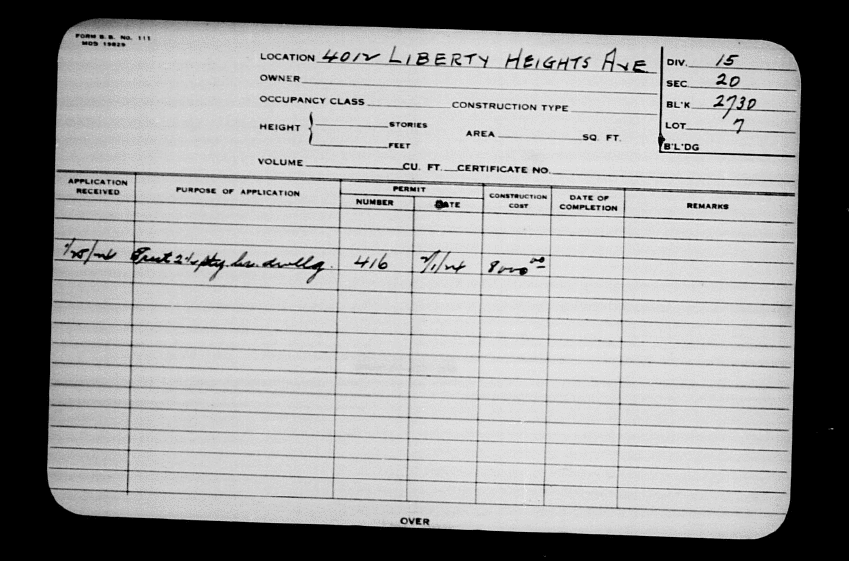 FORM B. B. No. 111
MOS 19829
LOCATION 4012 LIBERTY HEIGHTS AVE
DIV. 15
OWNER
SEC. 20
OCCUPANCY CLASS CONSTRUCTION TYPE
BL'K 2730
HEIGHT { STORIES AREA SQ. FT.
LOT 7
FEET
B'L'DG
VOLUME CU. FT. CERTIFICATE NO.
APPLICATION RECEIVED PURPOSE OF APPLICATION PERMIT NUMBER DATE CONSTRUCTION COST DATE OF COMPLETION REMARKS
1/25/24 Erect 2½ sty. dwllg. 416 2/1/24 8000.00
OVER